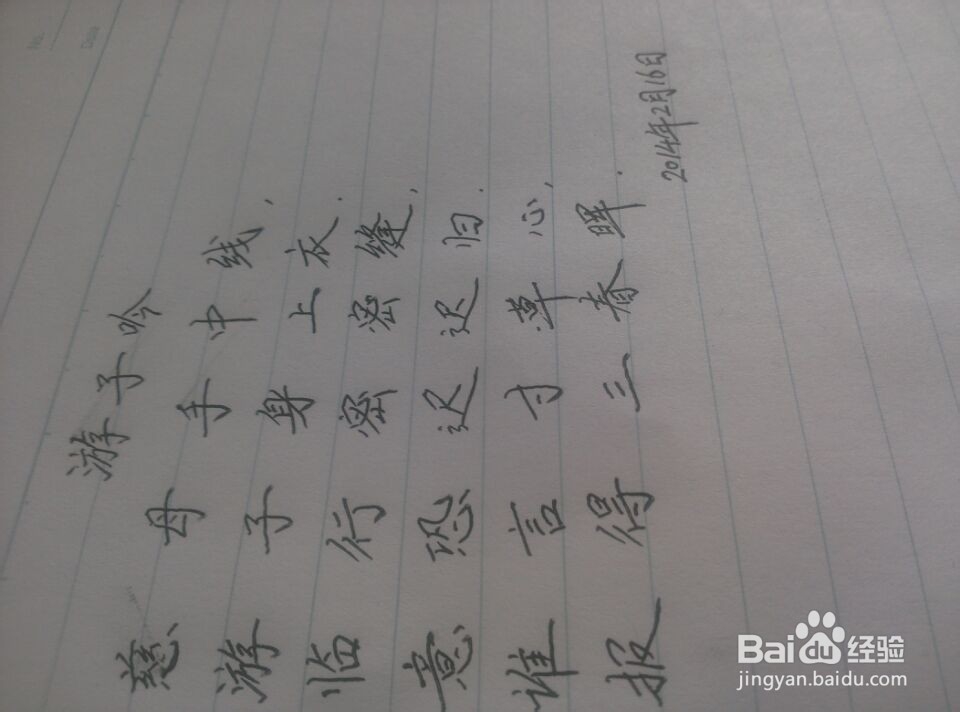 No.
Date
游子吟
慈母手中线,
游子身上衣.
临行密密缝,
意恐迟迟归.
谁言寸草心,
报得三春晖.
2014年2月16日
Baidu经验
jingyan.baidu.com